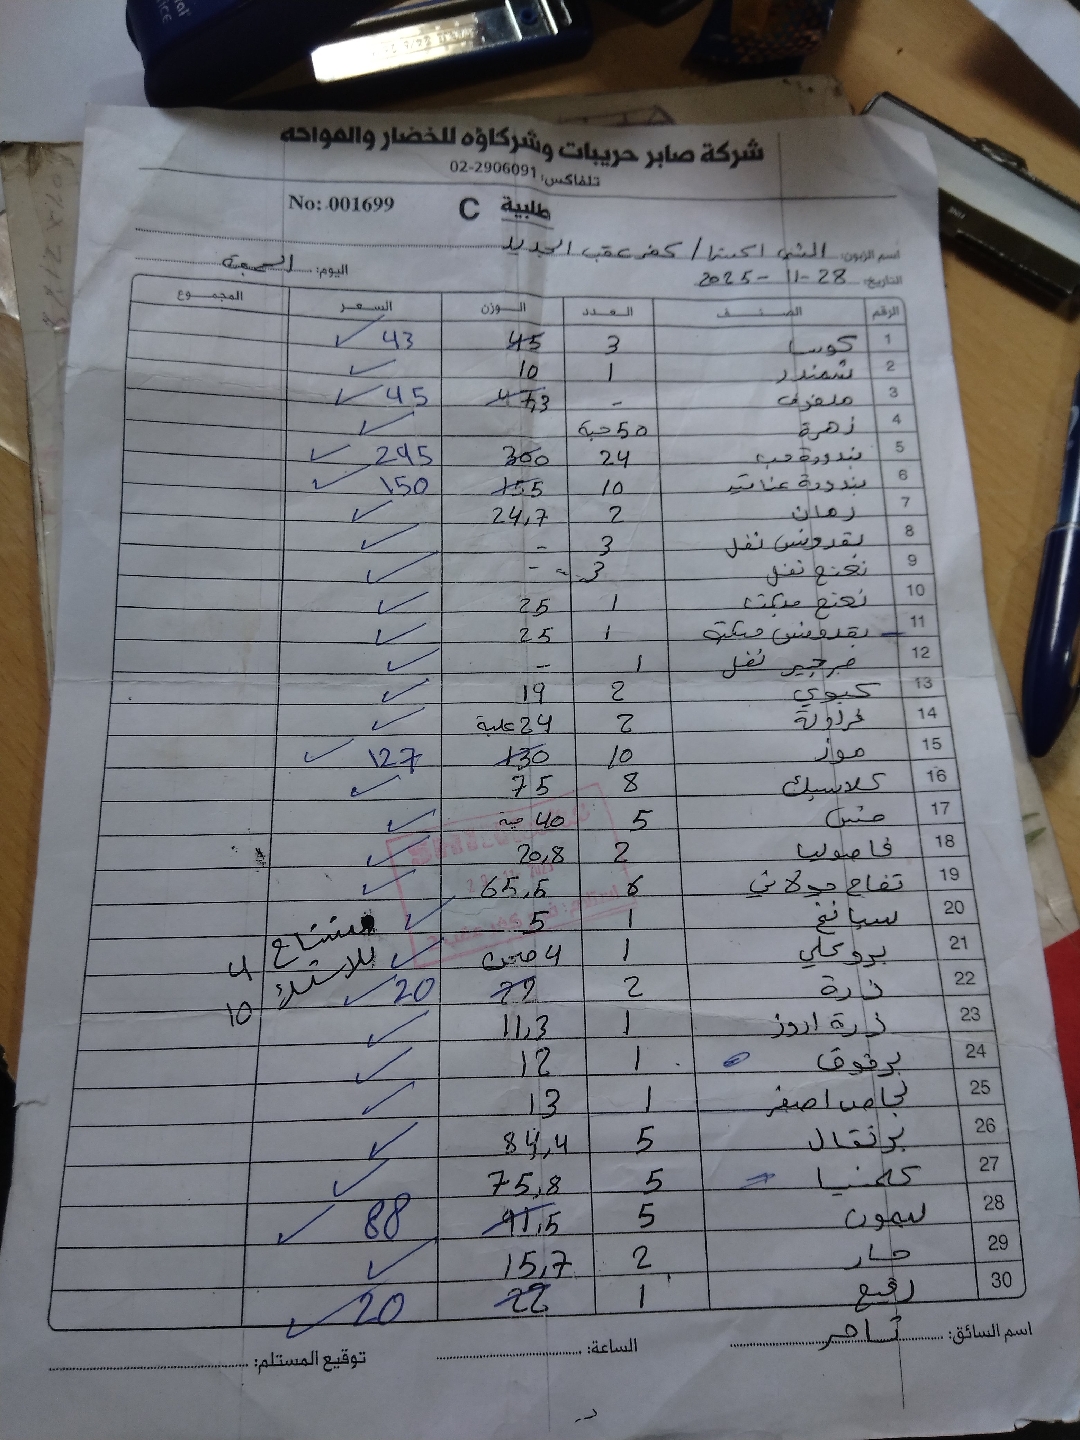 شركة صابر حريبات وشركاؤه للخضار والفواكه
تلفاكس: 02-2906091
طلبية C No: 001699
اسم الزبون: الشني اكسترا / كفر عقب الجديد
التاريخ: 28-11-2025 اليوم: الجمعة
الرقم الصنف العدد الوزن السعر المجموع
1 كوسا 3 45 43
2 شمندر 1 10
3 ملفوف - 45
4 زهرة 50 حبة
5 بندورة حب 24 300 295
6 بندورة عناقيد 10 155 150
7 رمان 2 24,7
8 بقدونس نفل 3 -
9 نعنع نفل 3 -
10 نعنع مبكت 1 25
11 بقدونس مبكت 1 25
12 جرجير نفل 1 -
13 كيوي 2 19
14 فراولة 2 24 علبة
15 موز 10 130 127
16 كلاسيك 8 75
17 خس 5 40 حبة
18 فاصوليا 2 20,8
19 تفاح جولاني 6 65,5
20 سبانخ 1 5
21 بروكلي 1 4 صحن
22 ذرة 2 22 20
23 ذرة اروز 1 11,3
24 برقوق 1 12
25 نجاص اصفر 1 13
26 برتقال 5 84,4
27 كلمنتينا 5 75,8
28 ليمون 5 91,5 88
29 حار 2 15,7
30 رفيع 1 22 20
4
10
اسم السائق: تامر الساعة: توقيع المستلم: